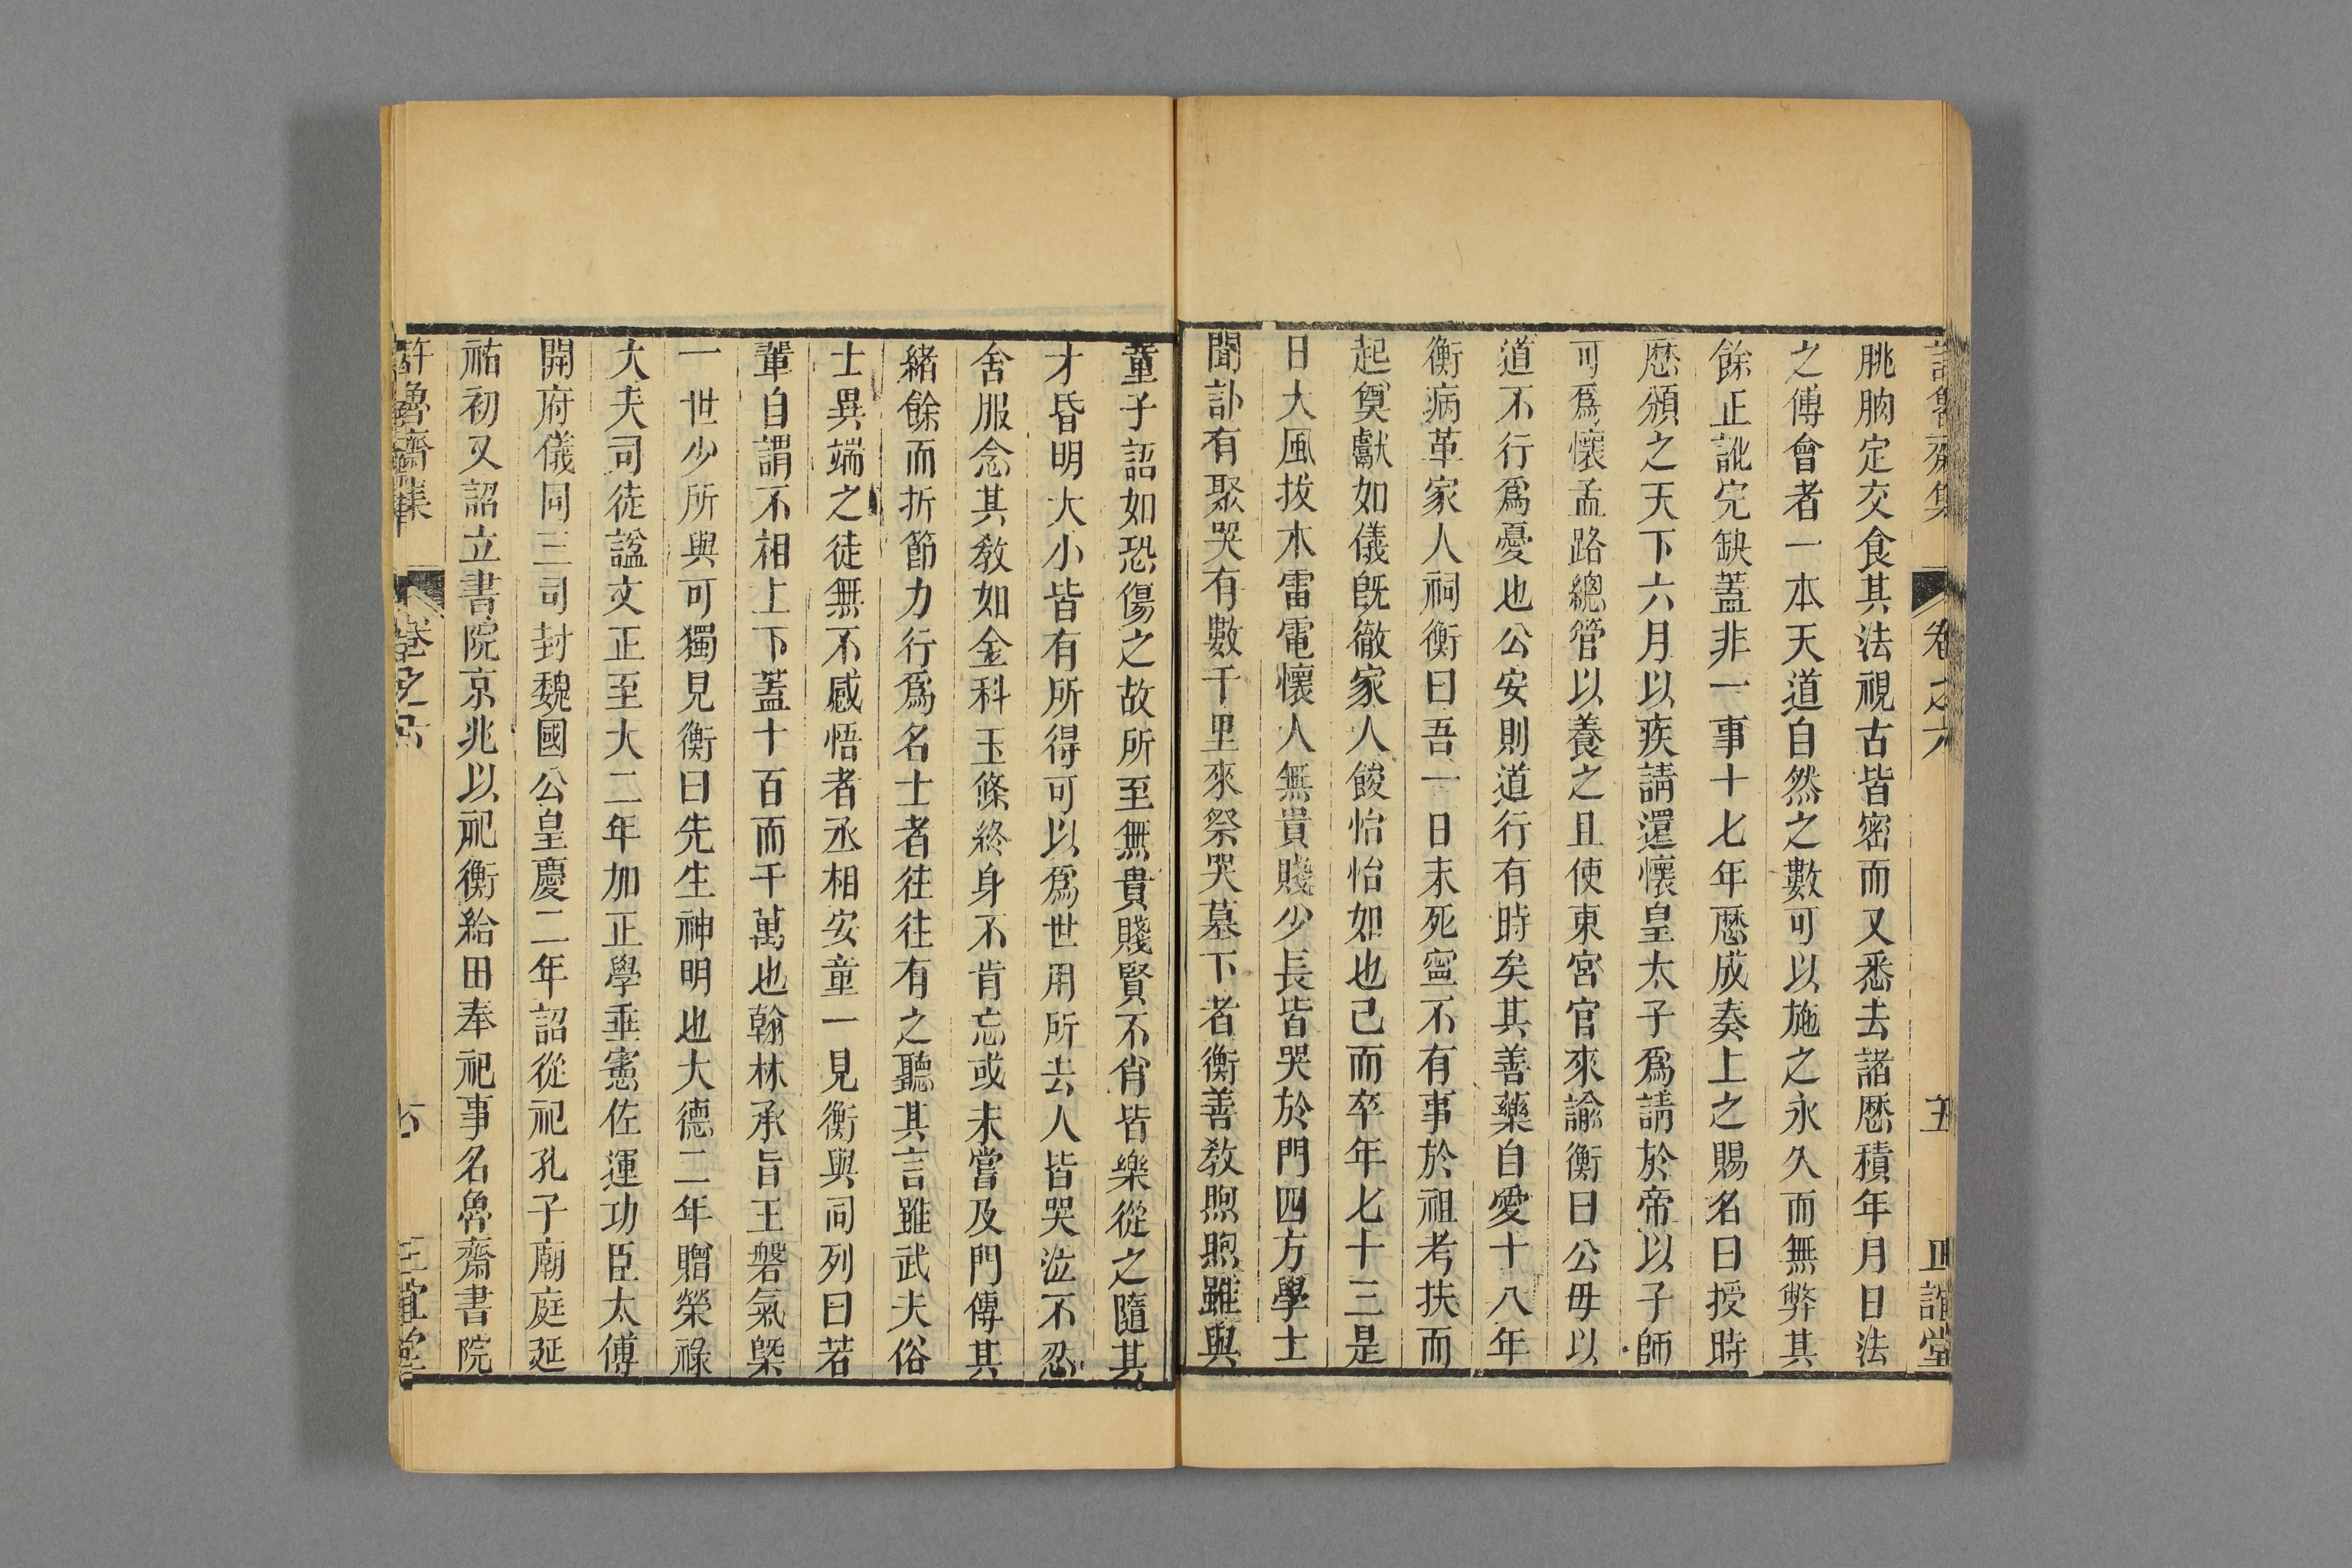 許魯齋集 卷之六 五 正誼堂
朓朒定交食其法視古皆密而又悉去諸厯積年月日法
之傅會者一本天道自然之數可以施之永久而無弊其
餘正訛完缺蓋非一事十七年厯成奏上之賜名曰授時
厯頒之天下六月以疾請還懷皇太子爲請於帝以子師
可爲懷孟路總管以養之且使東宮官來諭衡曰公毋以
道不行爲憂也公安則道行有時矣其善藥自愛十八年
衡病革家人祠衡曰吾一日未死寧不有事於祖考扶而
起奠獻如儀旣徹家人餕怡怡如也已而卒年七十三是
日大風拔木雷電懷人無貴賤少長皆哭於門四方學士
聞訃有聚哭有數千里來祭哭墓下者衡善敎煦煦雖與
童子語如恐傷之故所至無貴賤賢不肖皆樂從之隨其
才昏明大小皆有所得可以爲世用所去人皆哭泣不忍
舍服念其敎如金科玉條終身不肯忘或未嘗及門傳其
緒餘而折節力行爲名士者往往有之聽其言雖武夫俗
士異端之徒無不感悟者丞相安童一見衡與同列曰若
輩自謂不相上下蓋十百而千萬也翰林承旨王磐氣槩
一世少所與可獨見衡曰先生神明也大德二年贈榮祿
大夫司徒謚文正至大二年加正學垂憲佐運功臣太傅
開府儀同三司封魏國公皇慶二年詔從祀孔子廟庭延
祐初又詔立書院京兆以祀衡給田奉祀事名魯齋書院
許魯齋集 卷之六 六 正誼堂